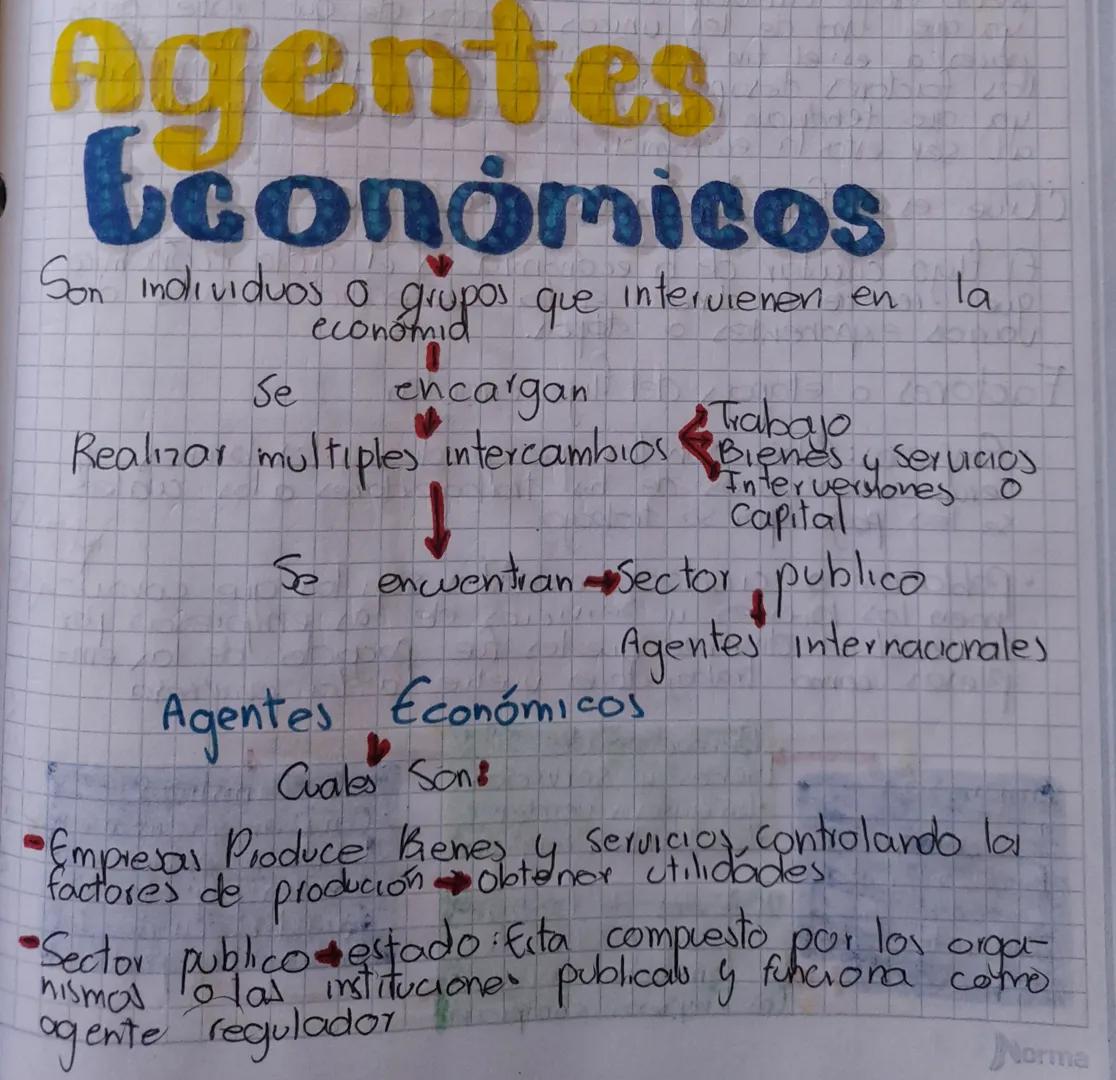 Agentes
Económicos
Son individuos o grupos que intervienen en la
económia
Se encargan
Realizar multiples intercambios
Trabajo
Bienes y servicios
Interversiones o
Capital
Se encuentran → Sector publico
Agentes internacionales
Agentes Económicos
Cuales Son:
- Empresas Produce Bienes y servicios, controlando los
factores de produción → Obtener utilidades
- Sector publico → estado: Esta compuesto por los orga-
nismos o las instituciones publicas y funciona como
agente regulador
Norma